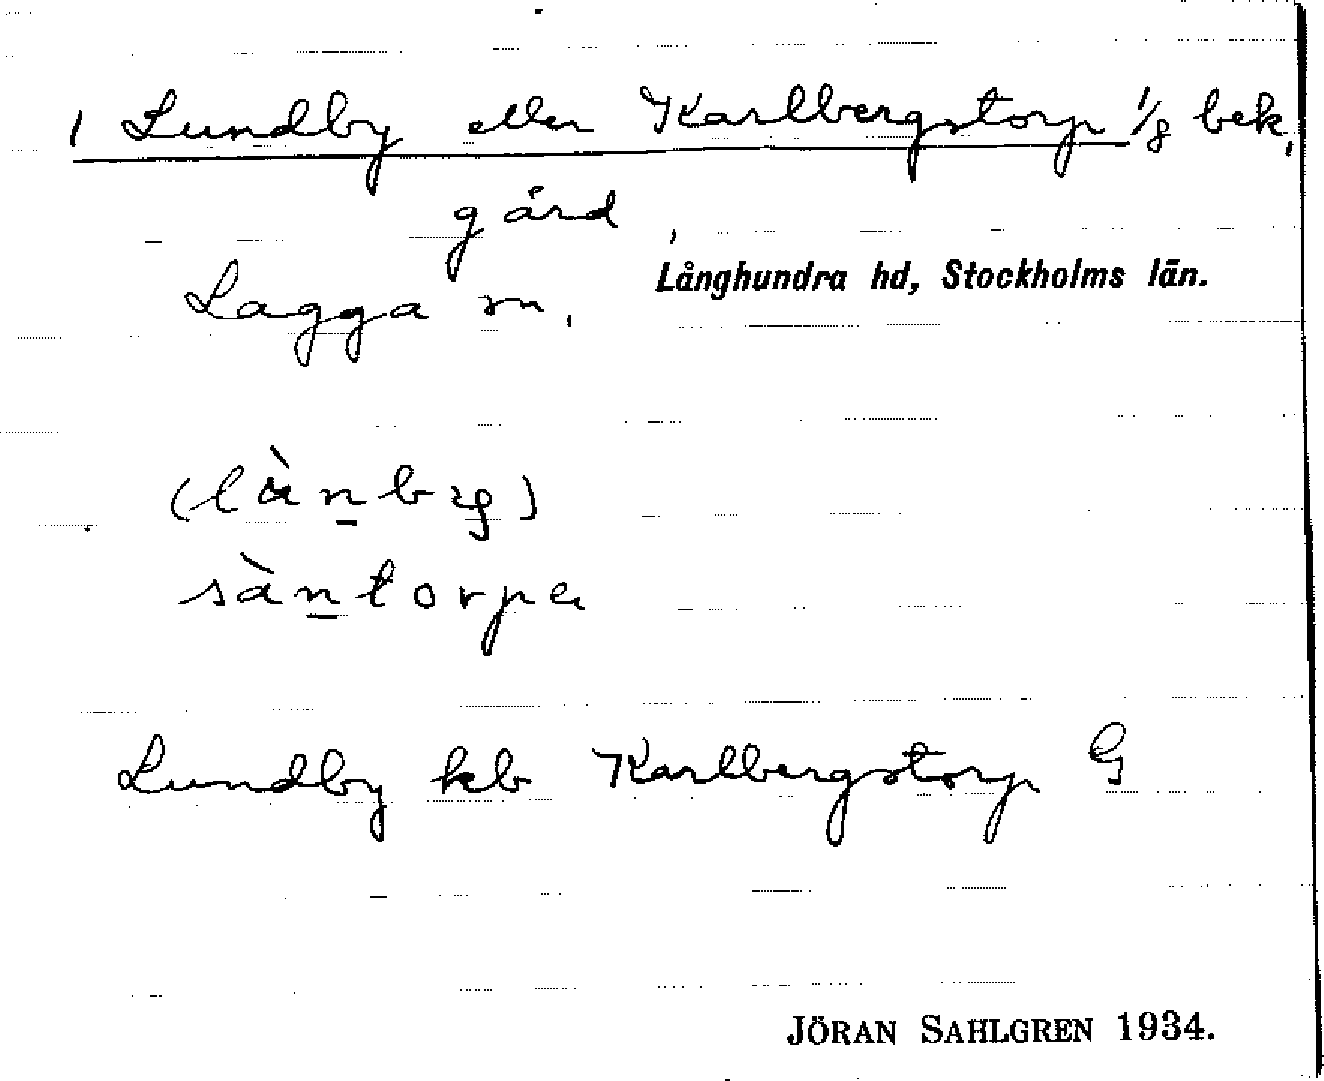 1 Lundby eller Karlbergstorp 1/8 bek,
gård,
Långhundra hd, Stockholms län.
Lagga sn,
(lànby)
sàntorpa
Lundby kb Karlbergstorp G
JÖRAN SAHLGREN 1934.